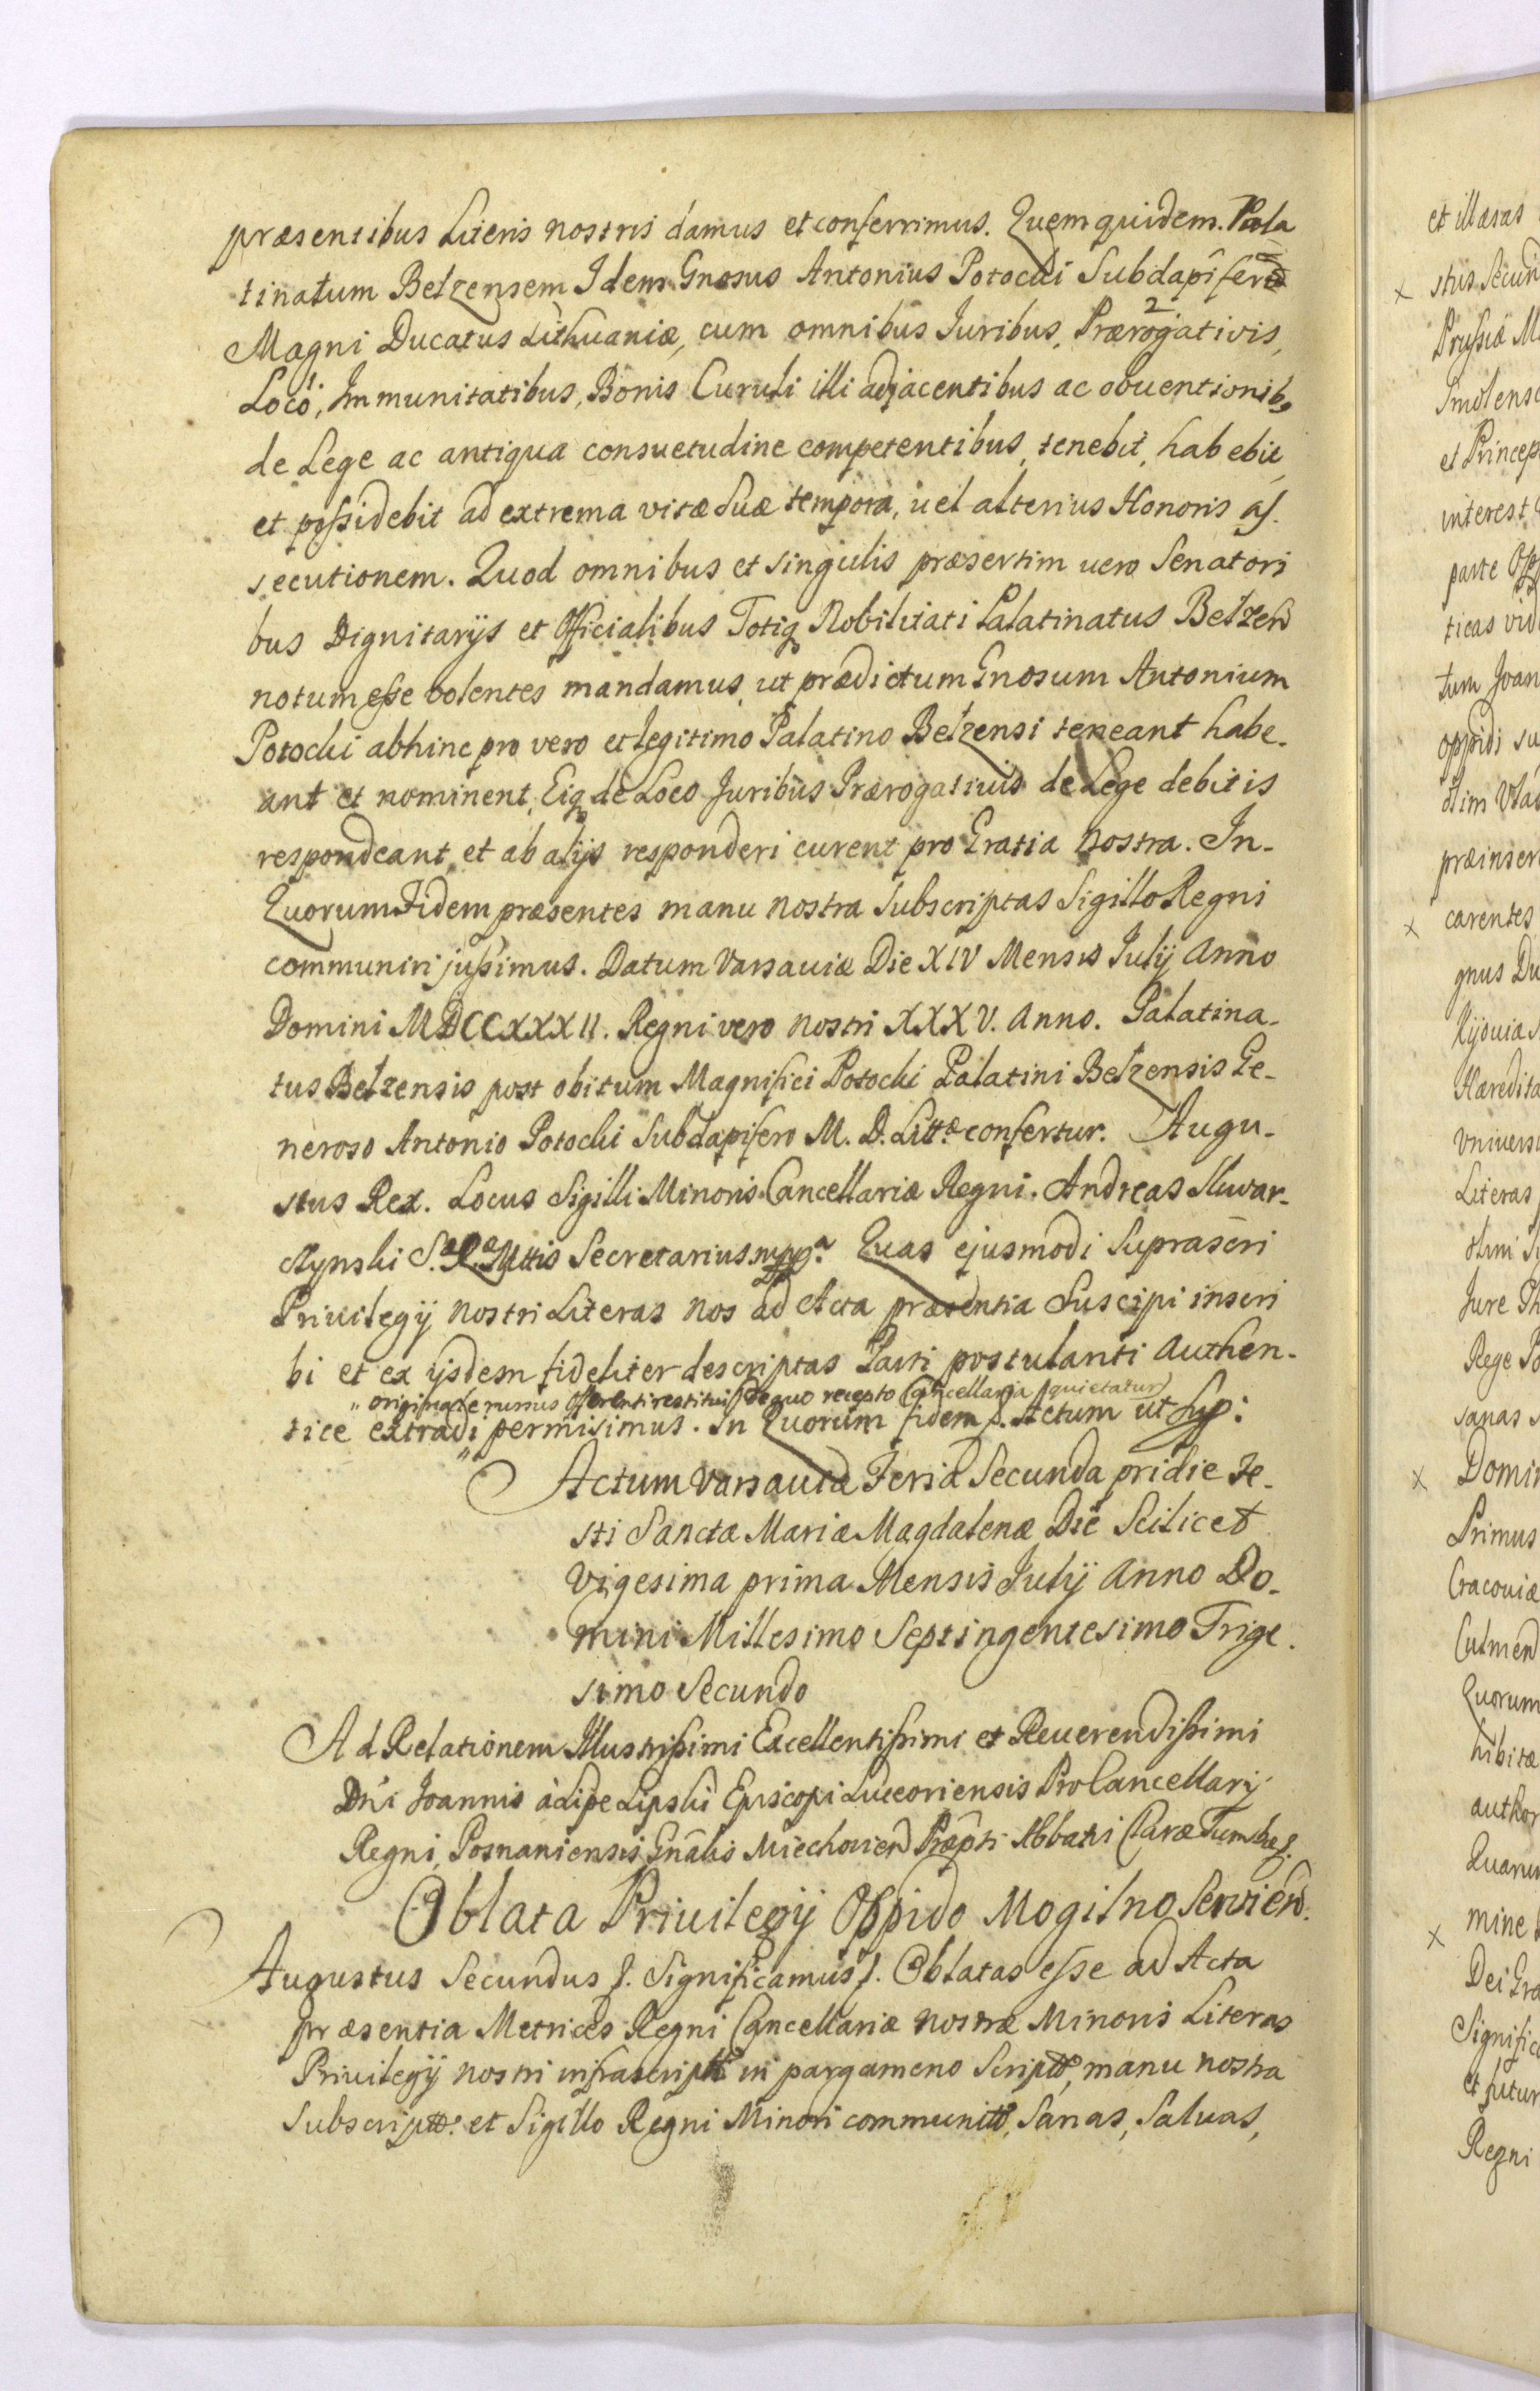 præsentibus Literis nostris damus et conferrimus. Quem quidem. Pala
tinatum Belzensem Idem Gnosus Antonius Potocki Subdapifer
Magni Ducatus Lithuaniæ, cum omnibus Juribus, Prærogativis, 2
Loco, 1. Immunitatibus, Bonis Curuli illi adjacentibus ac obuentionib9
de Lege ac antiqua consuetudine competentibus, tenebit, habebit,
et poßidebit ad extrema vitæ Suæ tempora, uel alterius Honoris as.
secutionem. Quod omnibus et singulis præsertim uero Senatori
bus Dignitarijs et Officialibus Totiq Nobilitati Palatinatus Belzen
notum eße volentes mandamus, ut prædictum Gnosum Antonium
Potocki abhinc pro vero et legitimo Palatino Belzensi teneant habe.
ant et nominent, Eiq de Loco Juribus Prærogatiuis de Lege debitis
respondeant, et ab alijs responderi curent pro Gratia nostra. In-
Quorum Fidem præsentes manu nostra Subscriptas Sigillo Regni
communiri jußimus. Datum Varsauiæ Die XIV Mensis Julij Anno
Domini MDCCXXXII. Regni vero nostri XXXV. Anno. Palatina-
tus Belzensis post obitum Magnifici Potocki Palatini Belzensis Ge-
neroso Antonio Potocki Subdapifero M. D. Littæ confertur. Augu-
stus Rex. Locus Sigilli Minoris Cancellariæ Regni. Andreas Skwar-
czynski S.æ R.æ Mttis Secretarius mppa. Quas ejusmodi Suprascri
Priuilegij nostri Literas nos ad Acta præsentia Suscipi inscri
bi et ex ijsdem fideliter descriptas Parti postulanti Authen-
" originale rursus Offerenti restitui /:de quo recepto Cancellaria quietatur/
tice extradi " permisimus. In Quorum fidem f. Actum ut Sup:
Actum Varsauiæ Feria Secunda pridie Fe-
sti Sanctæ Mariæ Magdalenæ Die Scilicet
Vigesima prima Mensis Julij Anno Do-
mini Millesimo Septingentesimo Trige-
simo Secundo
Ad Relationem Illustrißimi Excellentißimi et Reuerendißimi
Dni Joannis à Lipe Lipski Episcopi Luceoriensis ProCancellarij
Regni, Posnaniensis, Gnalis Miechouien Præpti Abbatis Claræ Tumbæ f.
Oblata Priuilegij Oppido Mogilno Servien.
Augustus Secundus f. Significamus f. Oblatas eße ad Acta
præsentia Metrices Regni Cancellariæ nostræ Minoris Literas
Priuilegij nostri infrascriptt in pargameno Scriptt, manu nostra
Subscriptt. et Sigillo Regni Minori communitt, Sanas, Saluas,
et illæsas
stus Secun
Prussiæ M
Smolensc
et Princep
interest
parte Opp
ticas vid
tum Joan
oppidi su
olim Vla
præinser
carentes
gnus Du
Kijouiæ
Hæredita
Vniuers
Literas
olim S
Jure Th
Rege Po
sanas s
Domin
Primus
Cracouiæ
Culmen
Quorum
hibitæ
author
Quaru
mine
Dei Gra
Significa
et futur
Regni